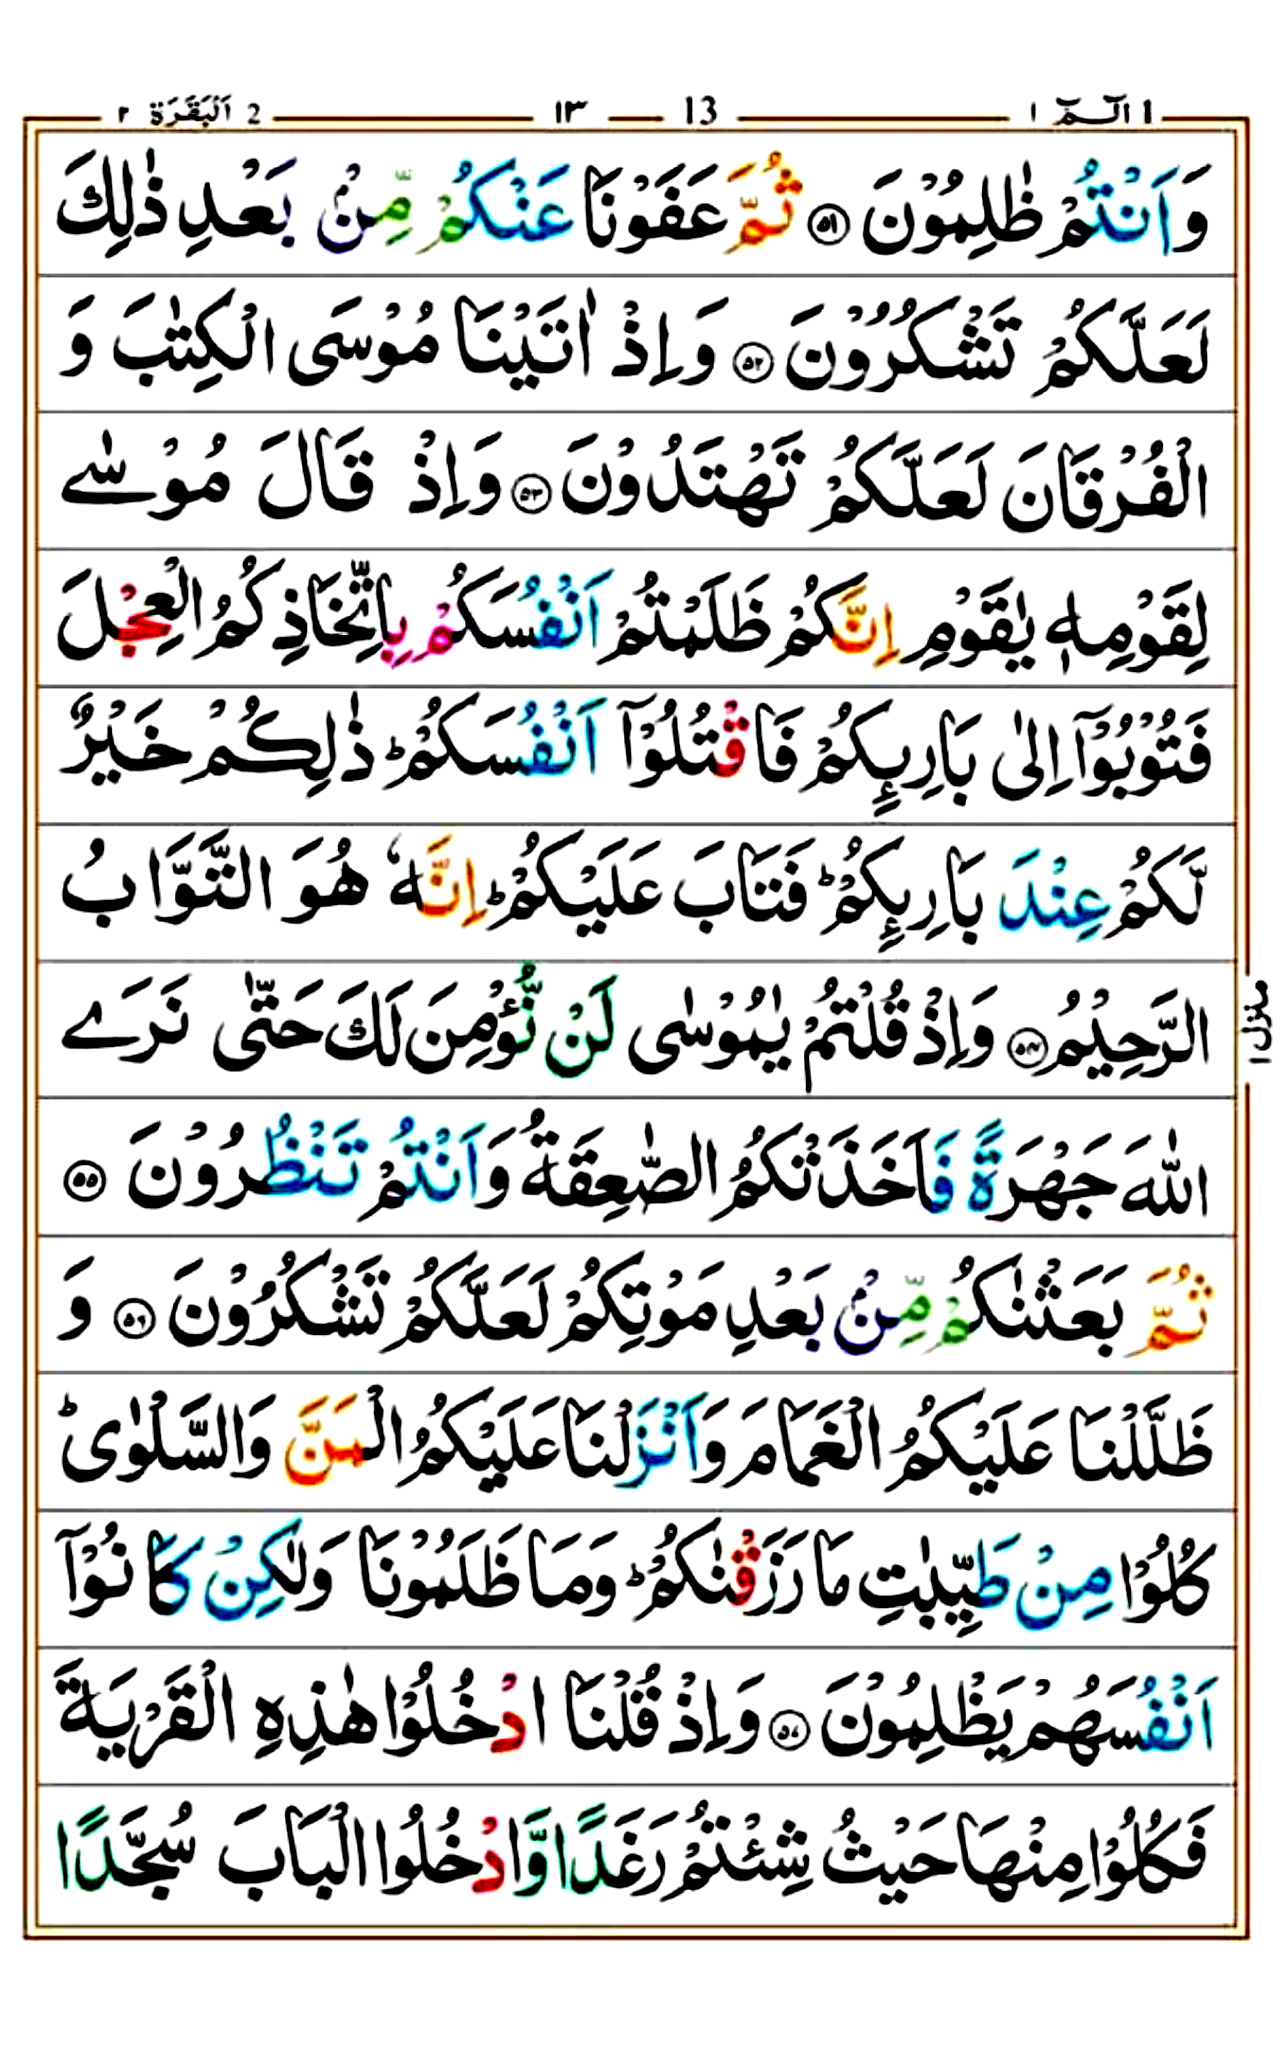 1 الٓـمّٓ ١ 13 ١٣ 2 اَلْبَقَرَة ٢
وَاَنْتُمْ ظٰلِمُوْنَ ۝٥١ ثُمَّ عَفَوْنَا عَنْكُمْ مِّنْۢ بَعْدِ ذٰلِكَ
لَعَلَّكُمْ تَشْكُرُوْنَ ۝٥٢ وَاِذْ اٰتَيْنَا مُوْسَى الْكِتٰبَ وَ
الْفُرْقَانَ لَعَلَّكُمْ تَهْتَدُوْنَ ۝٥٣ وَاِذْ قَالَ مُوْسٰے
لِقَوْمِهٖ يٰقَوْمِ اِنَّكُمْ ظَلَمْتُمْ اَنْفُسَكُمْ بِاتِّخَاذِكُمُ الْعِجْلَ
فَتُوْبُوْٓا اِلٰى بَارِىِٕكُمْ فَاقْتُلُوْٓا اَنْفُسَكُمْ ؕ ذٰلِكُمْ خَيْرٌ
لَّكُمْ عِنْدَ بَارِىِٕكُمْ ؕ فَتَابَ عَلَيْكُمْ ؕ اِنَّهٗ هُوَ التَّوَّابُ
الرَّحِيْمُ ۝٥٤ وَاِذْ قُلْتُمْ يٰمُوْسٰى لَنْ نُّؤْمِنَ لَكَ حَتّٰى نَرَے
اللّٰهَ جَهْرَةً فَاَخَذَتْكُمُ الصّٰعِقَةُ وَاَنْتُمْ تَنْظُرُوْنَ ۝٥٥
ثُمَّ بَعَثْنٰكُمْ مِّنْۢ بَعْدِ مَوْتِكُمْ لَعَلَّكُمْ تَشْكُرُوْنَ ۝٥٦ وَ
ظَلَّلْنَا عَلَيْكُمُ الْغَمَامَ وَاَنْزَلْنَا عَلَيْكُمُ الْمَنَّ وَالسَّلْوٰى ؕ
كُلُوْا مِنْ طَيِّبٰتِ مَا رَزَقْنٰكُمْ ؕ وَمَا ظَلَمُوْنَا وَلٰكِنْ كَانُوْٓا
اَنْفُسَهُمْ يَظْلِمُوْنَ ۝٥٧ وَاِذْ قُلْنَا ادْخُلُوْا هٰذِهِ الْقَرْيَةَ
فَكُلُوْا مِنْهَا حَيْثُ شِئْتُمْ رَغَدًا وَّادْخُلُوا الْبَابَ سُجَّدًا
منزل ١